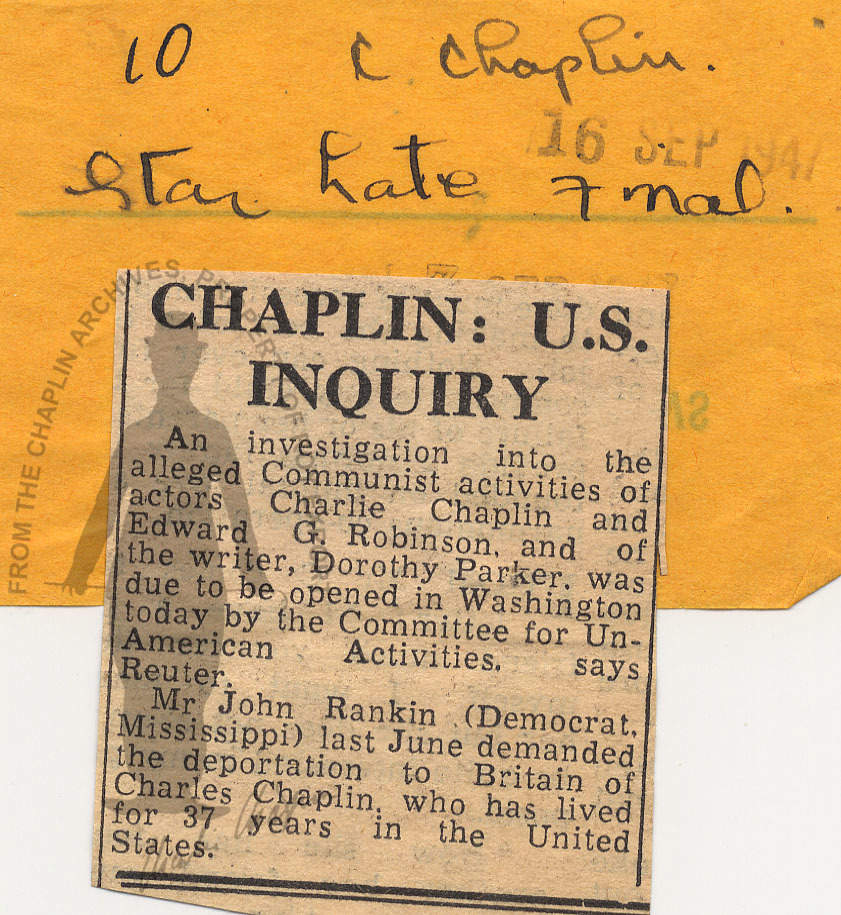 10 C Chaplin.
16 SEP 1947
Star Late Final.
CHAPLIN: U.S.
INQUIRY
An investigation into the
alleged Communist activities of
actors Charlie Chaplin and
Edward G. Robinson, and of
the writer, Dorothy Parker, was
due to be opened in Washington
today by the Committee for Un-
American Activities, says
Reuter.
Mr John Rankin (Democrat,
Mississippi) last June demanded
the deportation to Britain of
Charles Chaplin, who has lived
for 37 years in the United
States.
FROM THE CHAPLIN ARCHIVES, PROPERTY OF